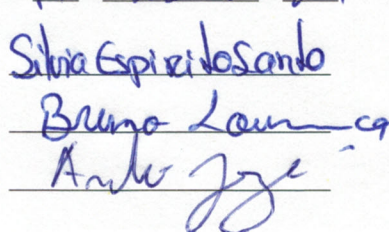 Silvia Espirito Santo
Bruno Lourenço
André Jorge